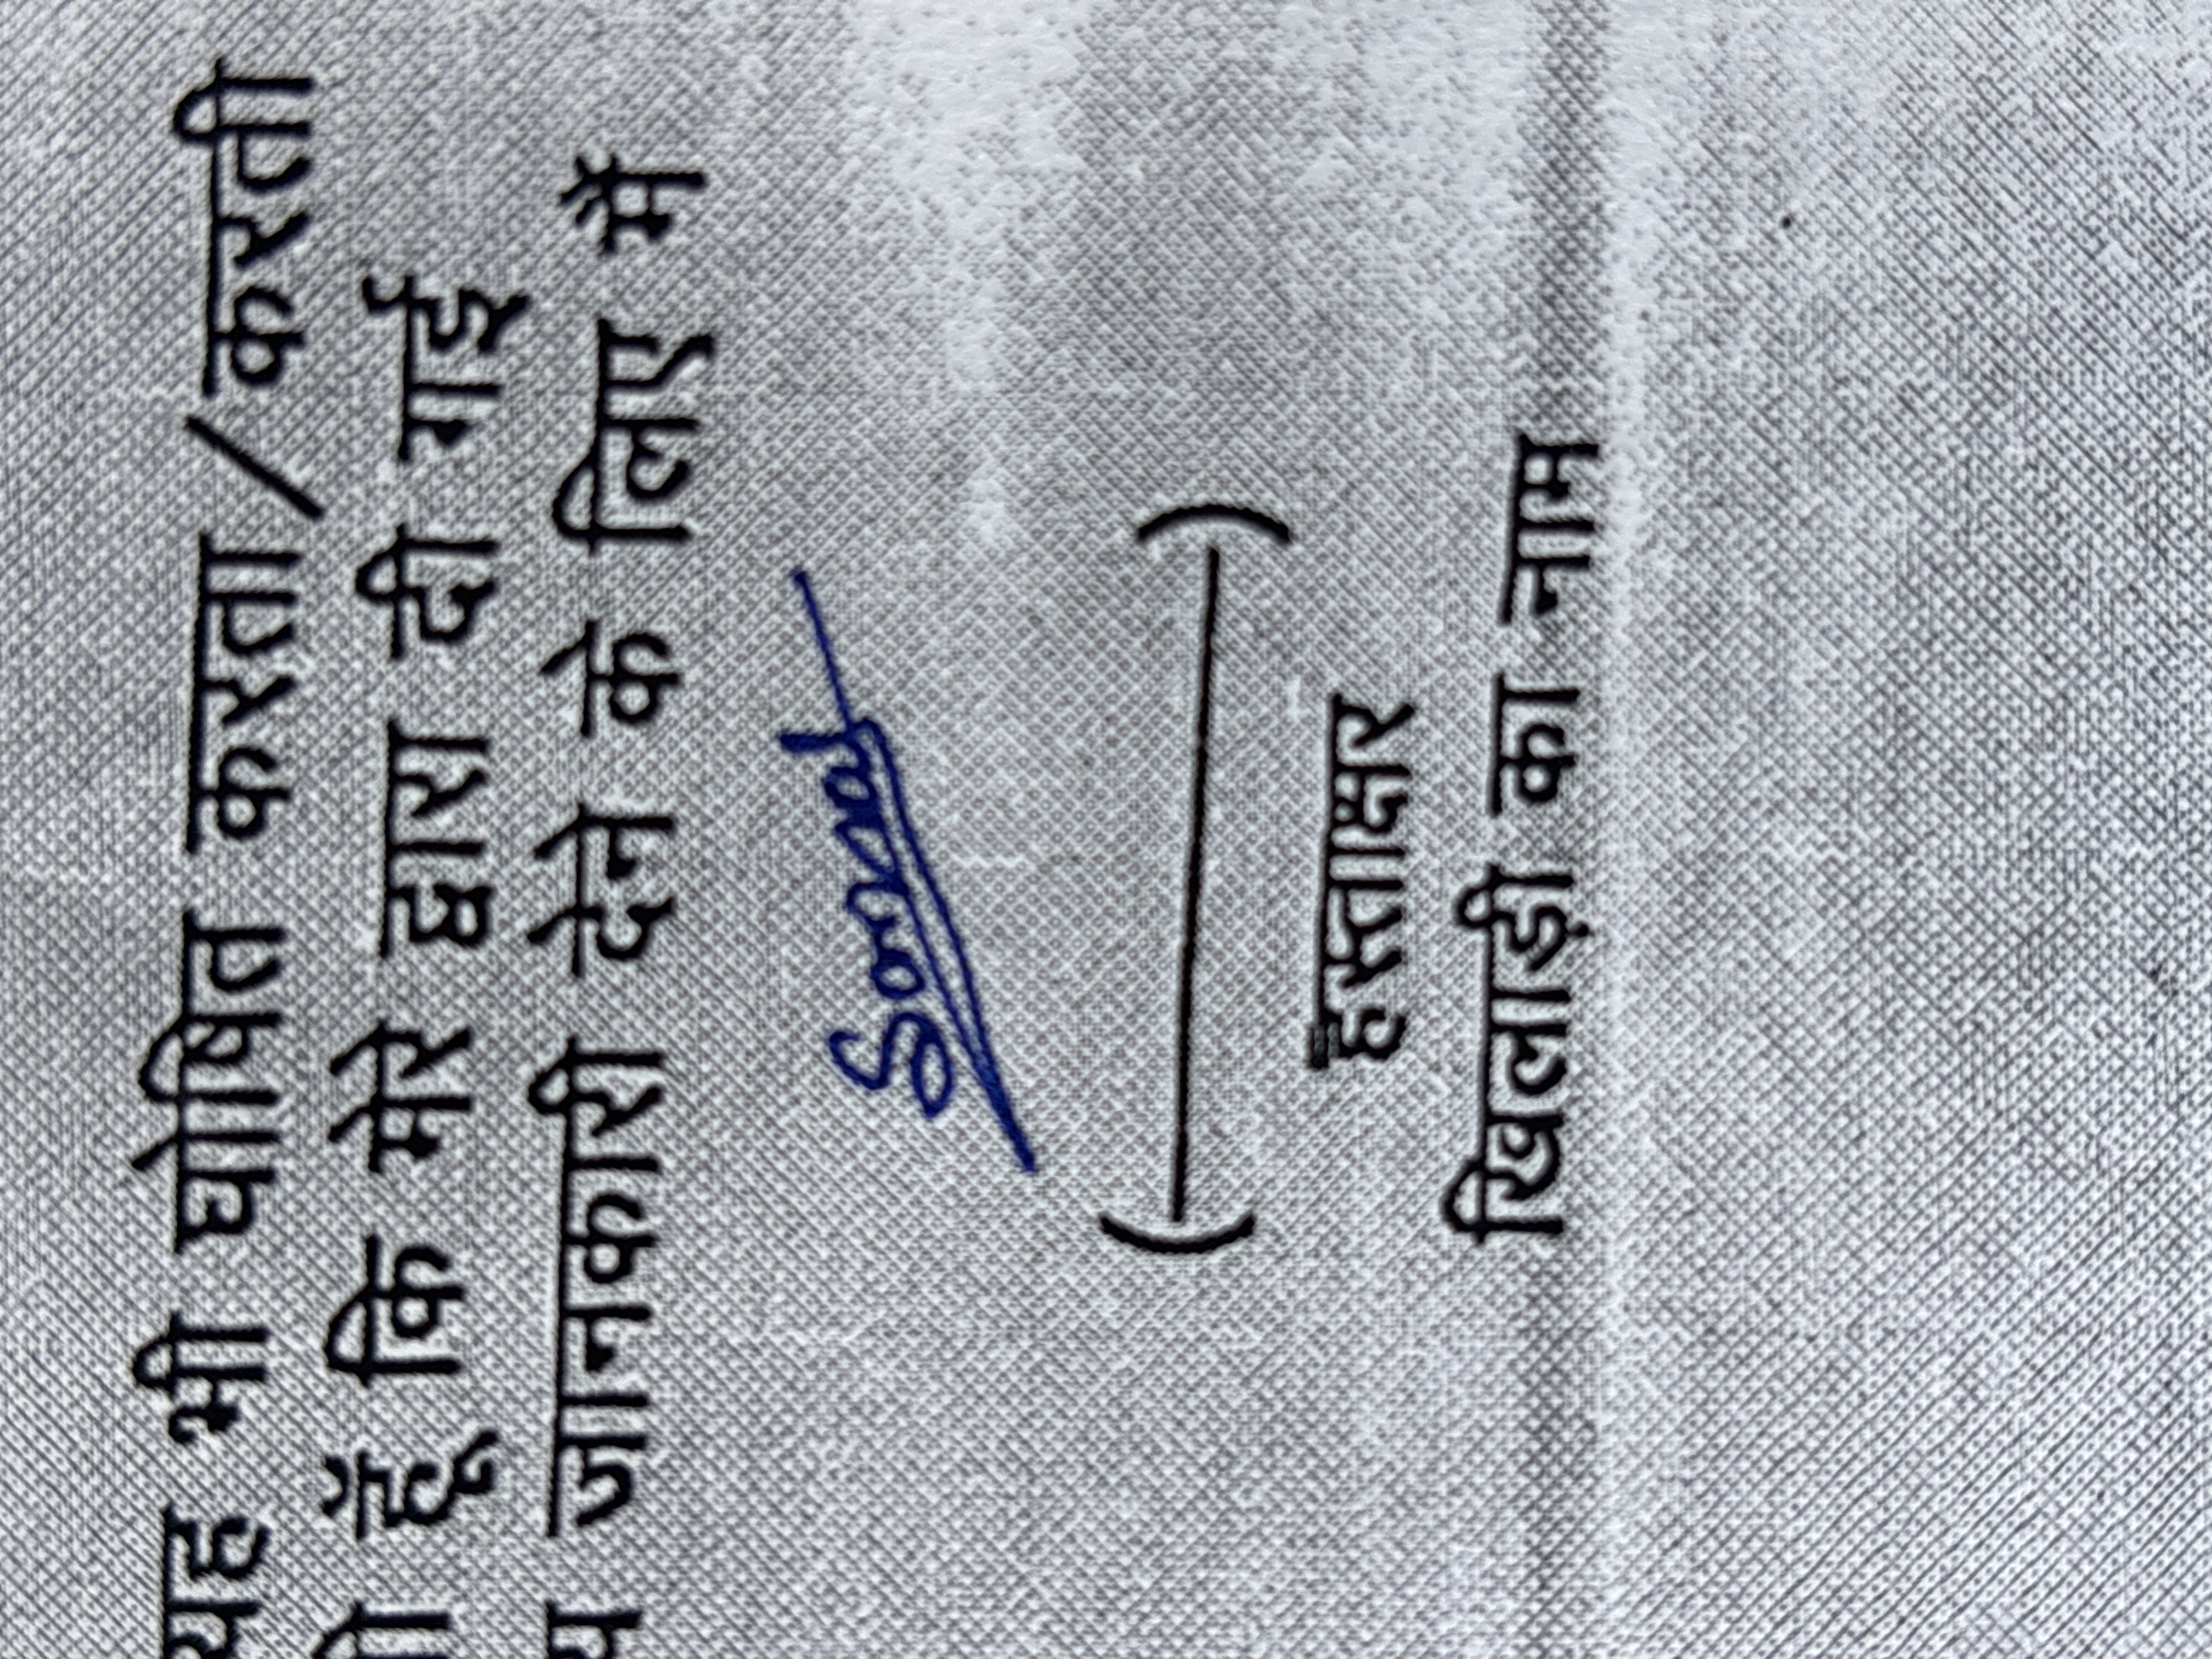 यह भी घोषित करता/करती
हूँ कि मेरे द्वारा दी गई
जानकारी देने के लिए मैं
( )
हस्ताक्षर
खिलाड़ी का नाम